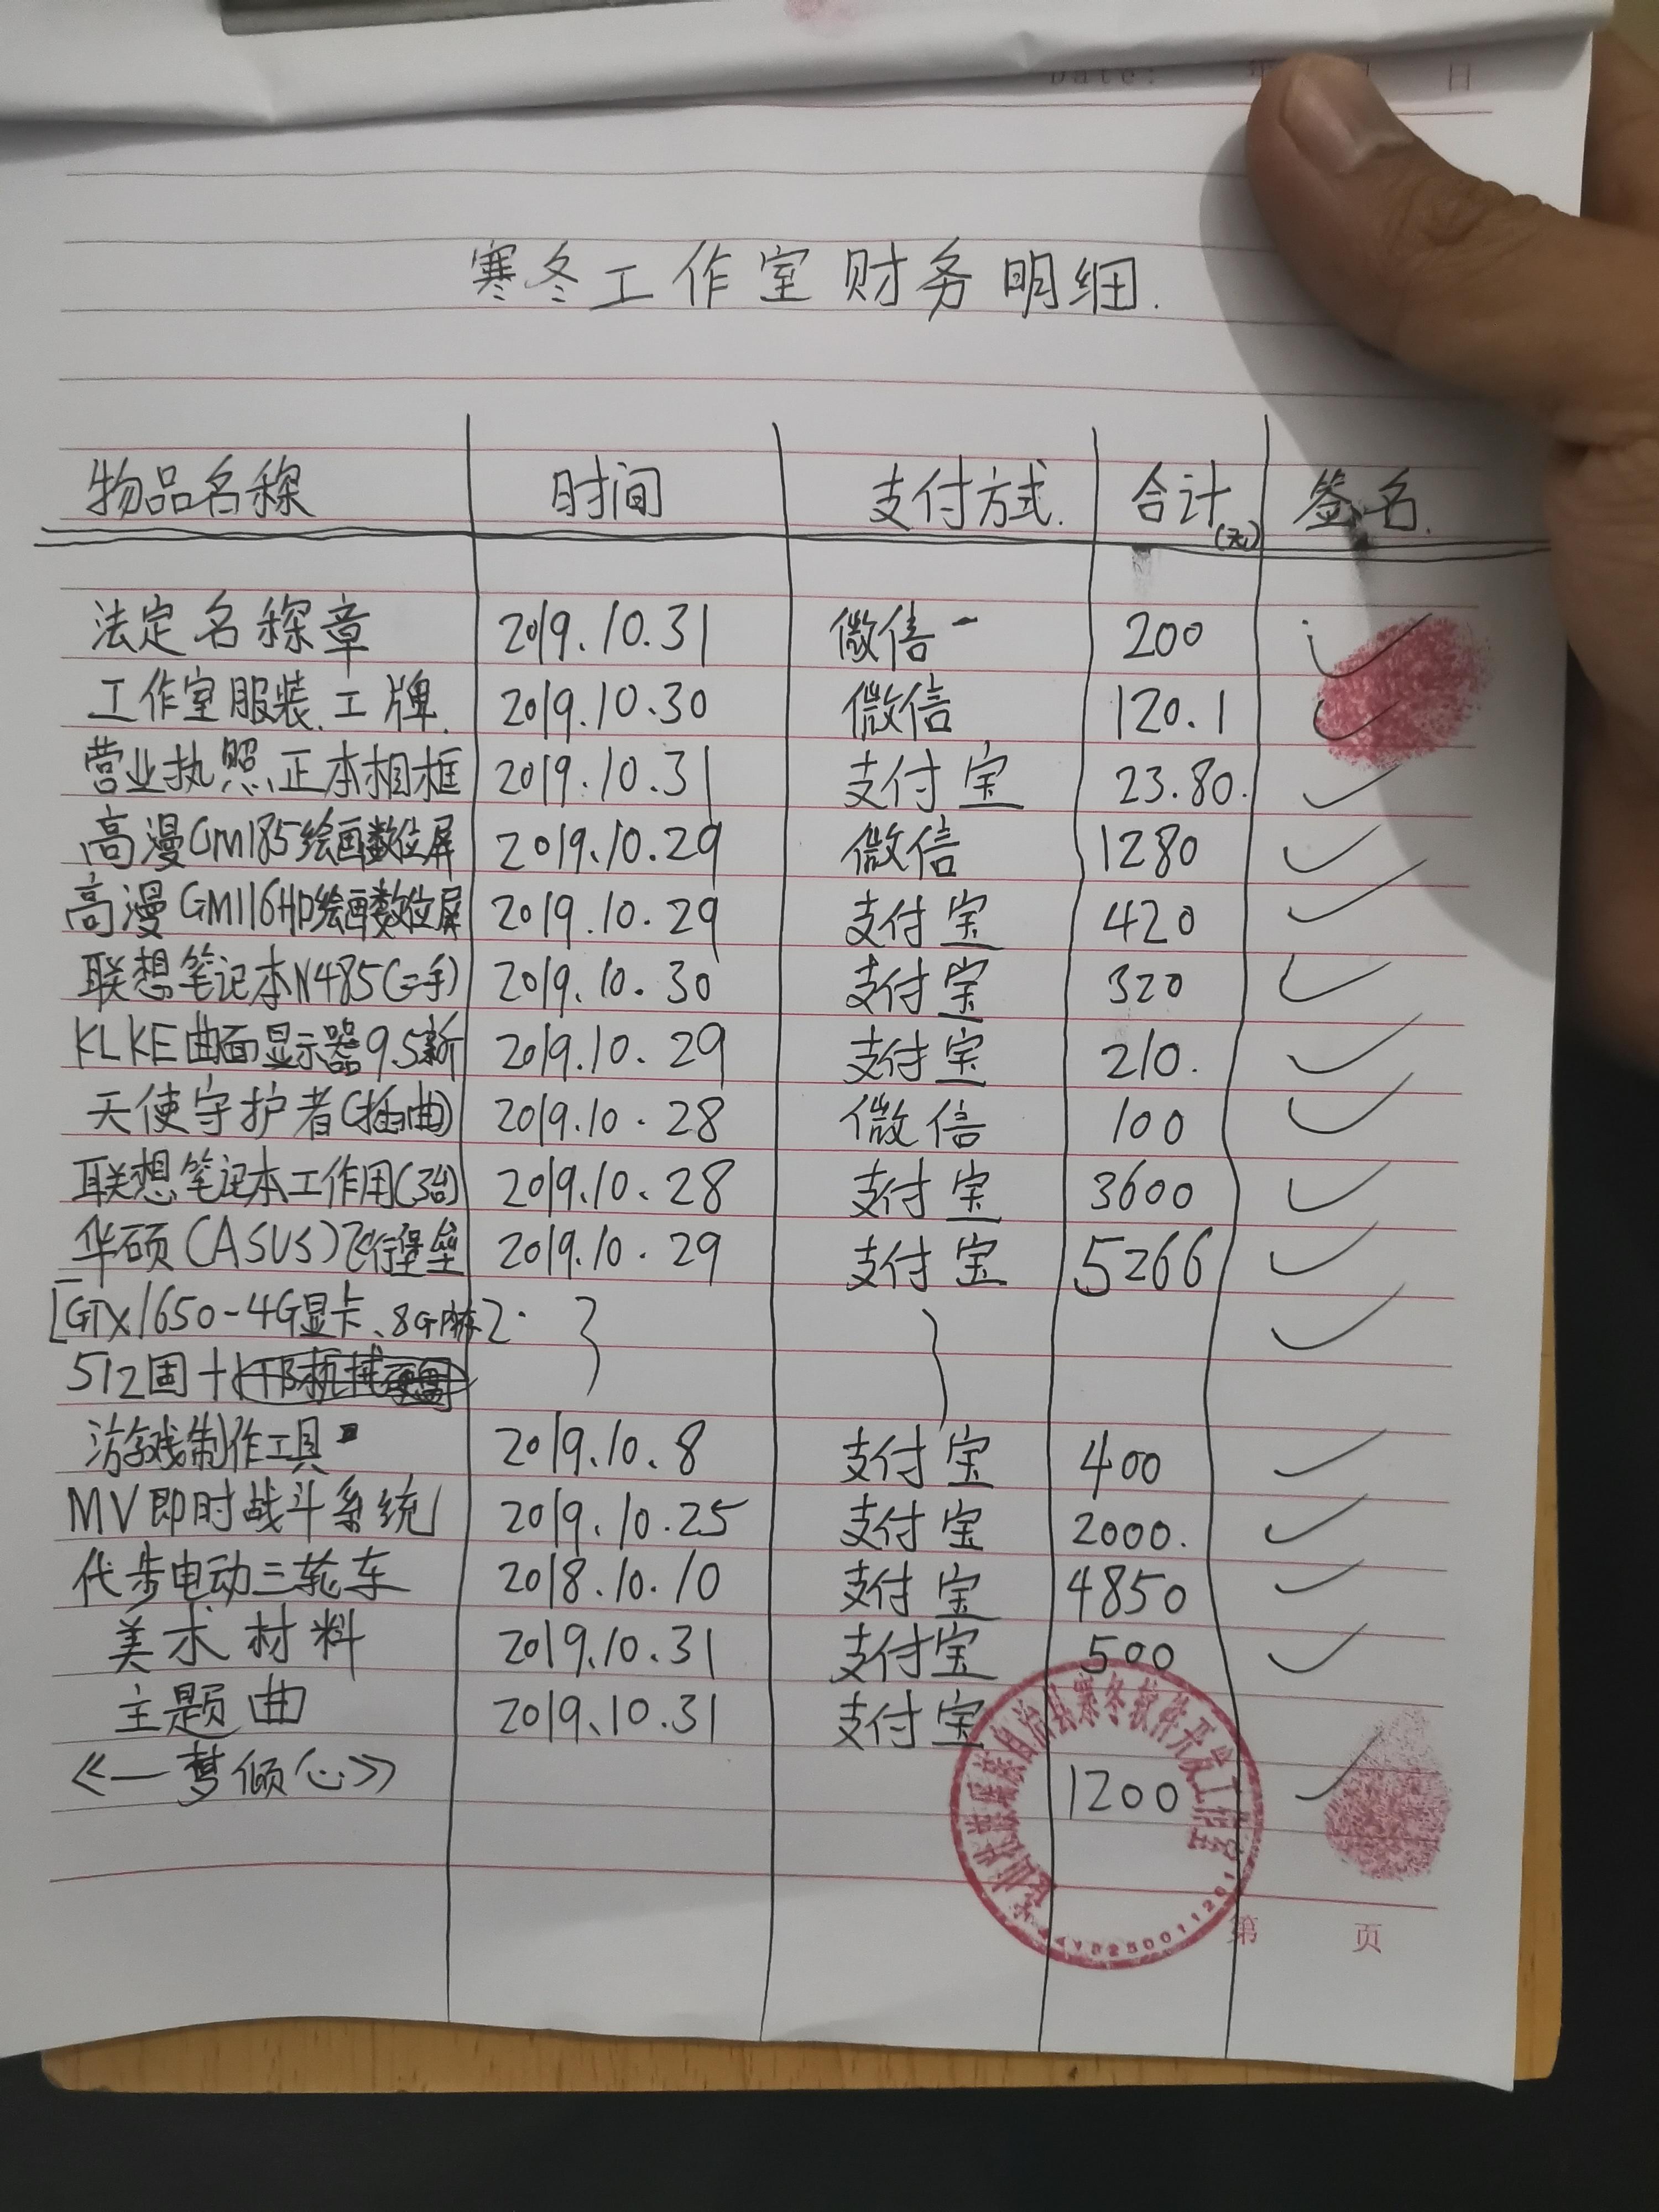 Date: 年 日
寒冬工作室财务明细.
物品名称 时间 支付方式. 合计(元) 签名.
法定名称章 2019.10.31 微信 200
工作室服装.工牌. 2019.10.30 微信 120.1
营业执照.正本相框 2019.10.31 支付宝 23.80.
高漫GM185绘画数位屏 2019.10.29 微信 1280
高漫GM116HD绘画数位屏 2019.10.29 支付宝 420
联想笔记本N485(二手) 2019.10.30 支付宝 320
KLKE曲面显示器9.5新 2019.10.29 支付宝 210.
天使守护者(插曲) 2019.10.28 微信 100
联想笔记本工作用(3台) 2019.10.28 支付宝 3600
华硕(ASUS)飞行堡垒 2019.10.29 支付宝 5266
[GTX1650-4G显卡、8G内存]
512固+
游戏制作工具 2019.10.8 支付宝 400
MV即时战斗系统 2019.10.25 支付宝 2000.
代步电动三轮车 2018.10.10 支付宝 4850
美术材料 2019.10.31 支付宝 500
主题曲 2019.10.31 支付宝
《一梦倾心》 1200
自治县寒冬软件开发工作室
第 页